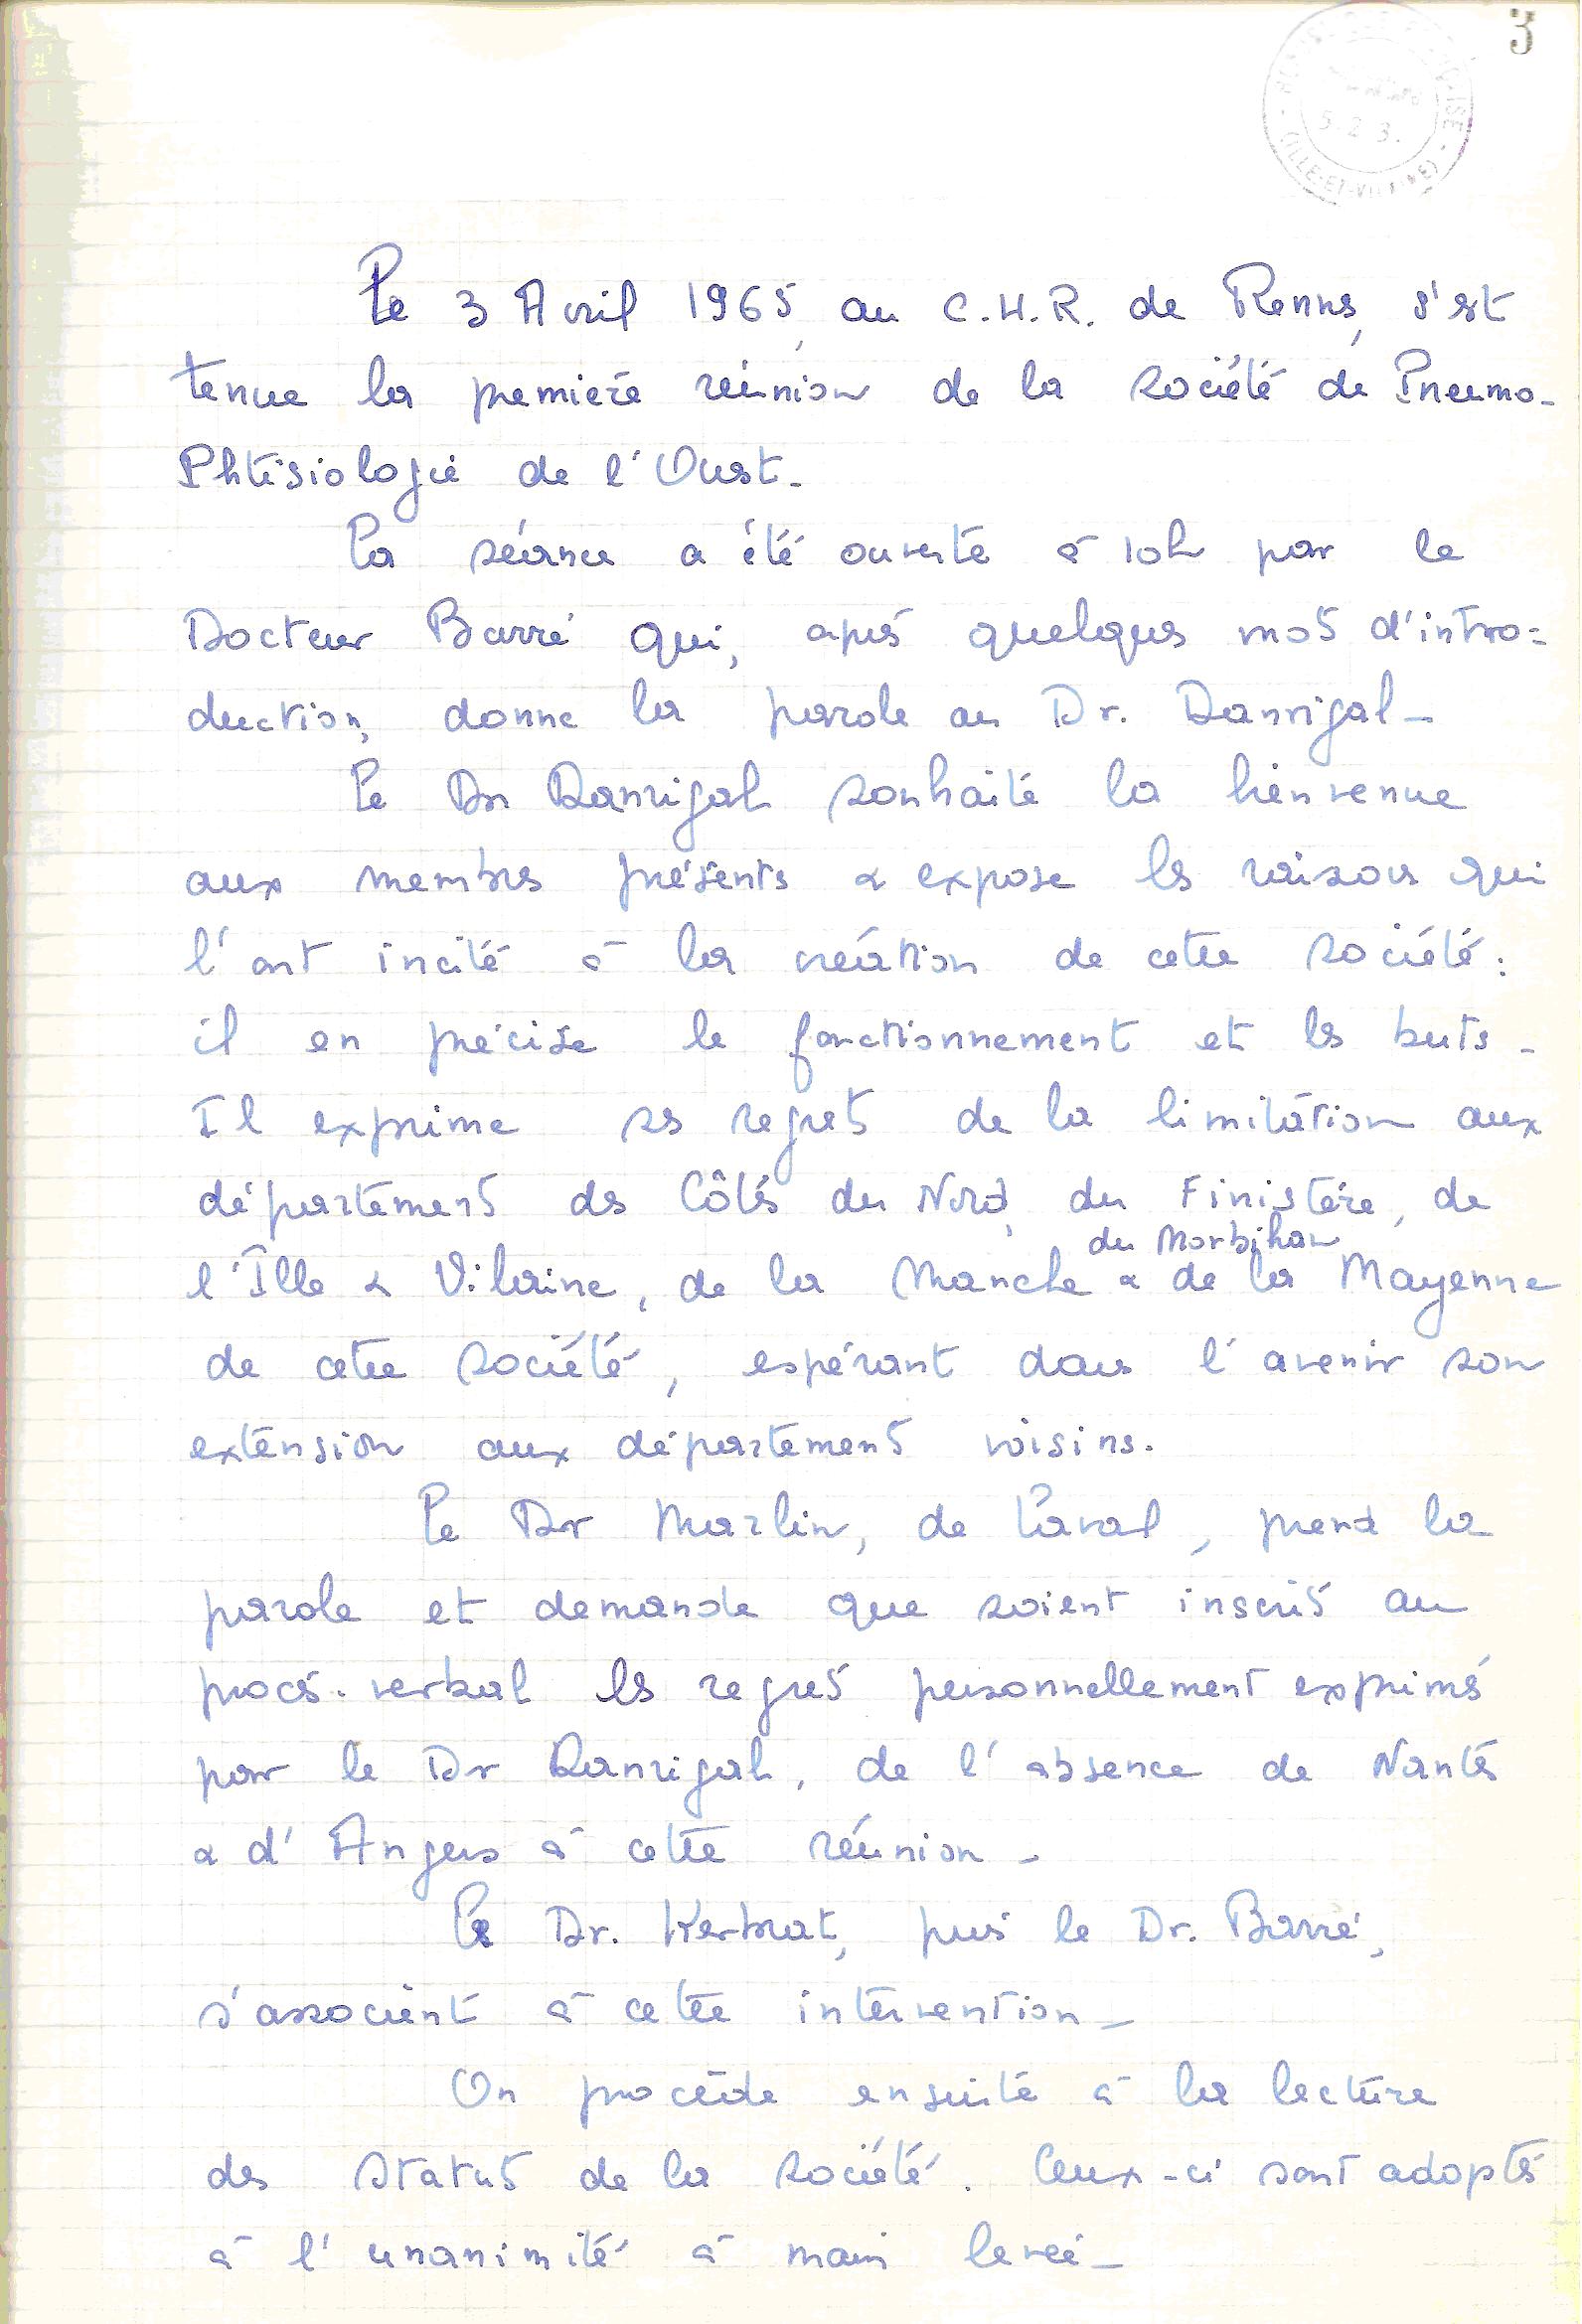 3
RÉPUBLIQUE FRANÇAISE
5.2 3.
(ILLE-ET-VILAINE)
Le 3 Avril 1965, au C.H.R. de Rennes, s'est
tenue la première réunion de la société de Pneumo-
Phtisiologie de l'Ouest-
La séance a été ouverte à 10h par le
Docteur Barré qui, après quelques mots d'intro=
duction, donne la parole au Dr. Danrigal-
Le Dr Danrigal souhaite la bienvenue
aux membres présents & expose les raisons qui
l'ont incité à la création de cette société:
il en précise le fonctionnement et les buts-
Il exprime ses regrets de la limitation aux
départements des Côtes du Nord, du Finistère, de
du Morbihan
l'Ille & Vilaine, de la Manche & de la Mayenne
de cette société, espérant dans l'avenir son
extension aux départements voisins.
Le Dr Marlin, de Laval, prend la
parole et demande que soient inscrits au
procès-verbal les regrets personnellement exprimés
par le Dr Danrigal, de l'absence de Nantes
& d'Angers à cette réunion-
Le Dr. Kerbrat, puis le Dr. Barré,
s'associent à cette intervention-
On procède ensuite à la lecture
des statuts de la société. Ceux-ci sont adoptés
à l'unanimité à main levée-